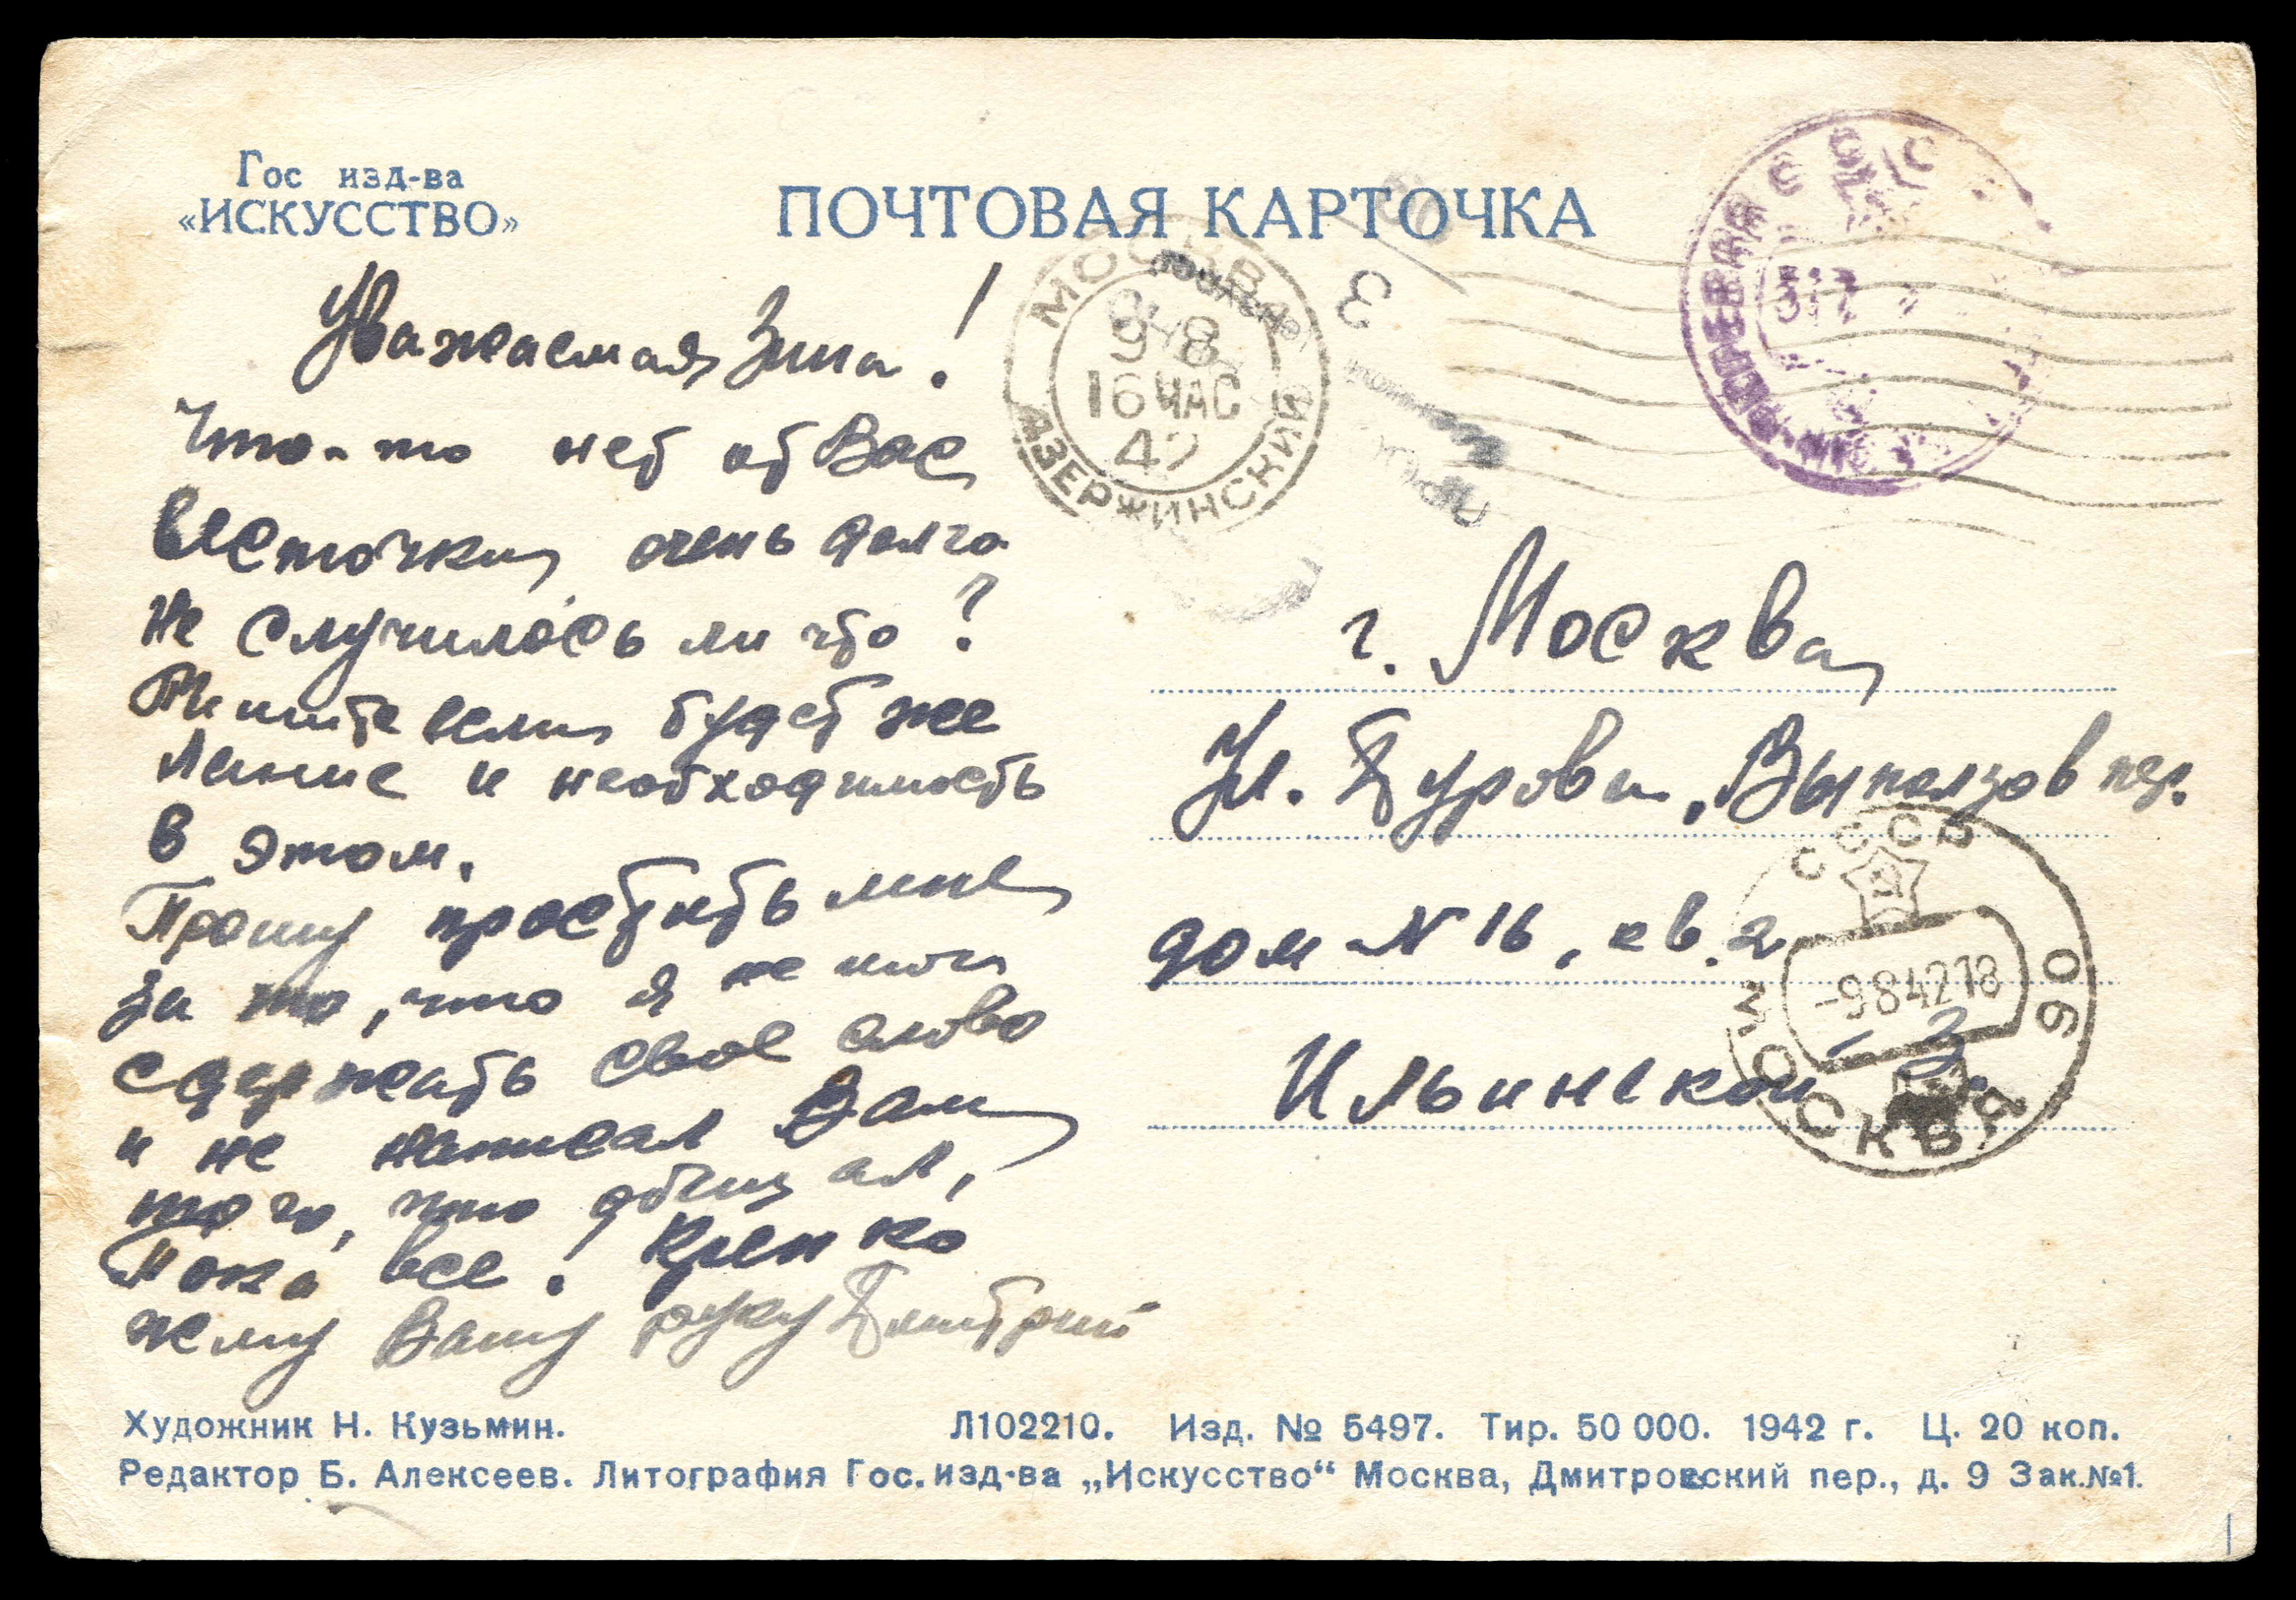 Гос изд-ва
«ИСКУССТВО»
ПОЧТОВАЯ КАРТОЧКА
Уважаемая Зина!
Что-то нет от Вас
весточки, очень долго
Не случилось ли что?
Пишите если будет же
лание и необходимость
в этом.
Прошу простить мне
за то, что я не мог
сдержать свое слово
и не написал Вам
того, что обещал,
Пока все! Крепко
жму Вашу руку Дмитрий
МОСКВА
9 8
16 ЧАС
42
ДЗЕРЖИНСКИЙ
3
СССР
517
г. Москва
Ул. Дурова, Выползов пер.
дом N 16, кв. 2
Ильинской З.
СССР
-9 8 42 18
МОСКВА
90
Художник Н. Кузьмин.
Л102210. Изд. № 5497. Тир. 50 000. 1942 г. Ц. 20 коп.
Редактор Б. Алексеев. Литография Гос. изд-ва „Искусство“ Москва, Дмитровский пер., д. 9 Зак.№1.